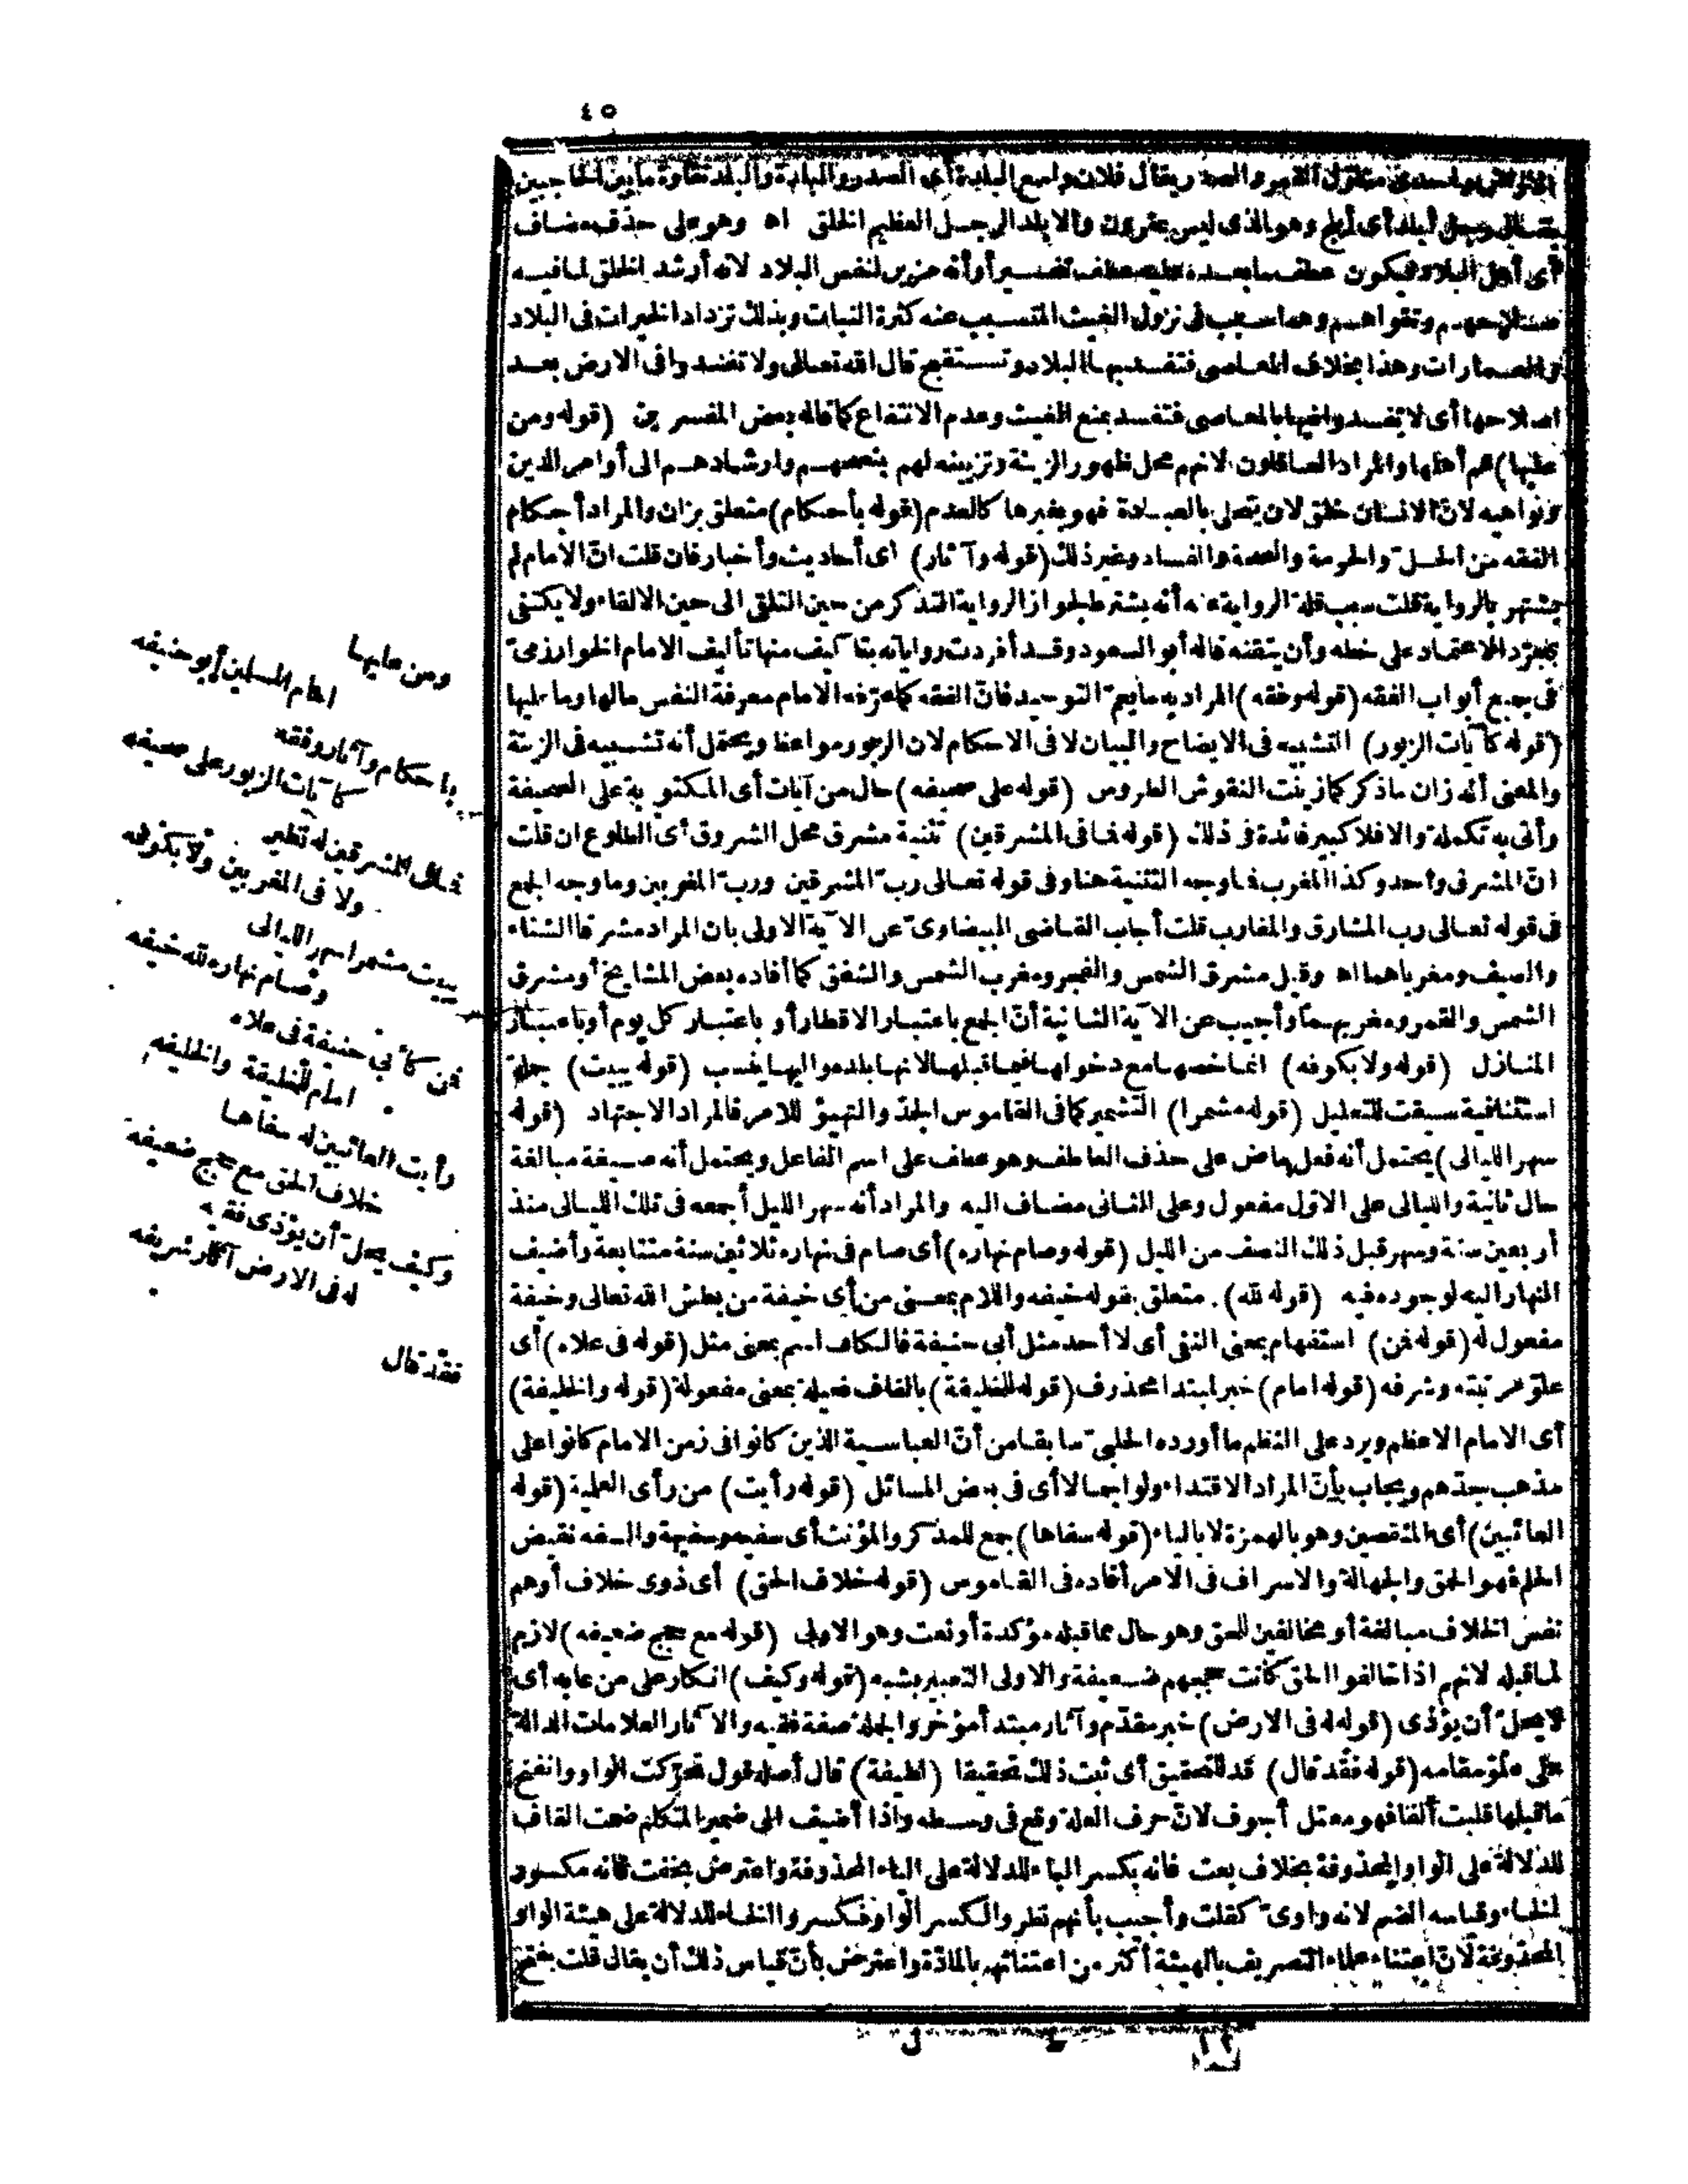 ٤٥
يقال رجل أبلد أى أبلج وهو الذى ليس بمقرون والابلد الرجل العظيم الخلق اه وهو على حذف مضاف
أى أهل البلاد فيكون عطف ما بعده عليه عطف تفسير أو أنه مزين لنفس البلاد لانه أرشد الخلق لما فيه
صلاحهم وتقواهم وهما سبب فى نزول الغيث المتسبب عنه كثرة النبات وبذلك تزداد الخيرات فى البلاد
والعمارات وهذا بخلاف المعاصى فتفسد بها البلاد وتستقبح قال الله تعالى ولا تفسدوا فى الارض بعد
اصلاحها أى لا تفسدوا فيها بالمعاصى فتفسد بمنع الغيث وعدم الانتفاع كما قاله بعض المفسرين (قوله ومن
عليها) هم أهلها والمراد العاقلون لانهم محل ظهور الزينة وتزيينه لهم بنصحهم وارشادهم الى أوامر الدين
ونواهيه لانّ الانسان خلق لان يتحلى بالعبادة فهو بغيرها كالعدم (قوله بأحكام) متعلق بزان والمراد أحكام
الفقه من الحلّ والحرمة والصحة والفساد وغير ذلك (قوله وآثار) أى أحاديث وأخبار فان قلت انّ الامام لم
يشتهر بالرواية قلت سبب قلة الرواية عنه أنه يشترط لجواز الرواية التذكر من حين التلقى الى حين الالقاء ولا يكتفى
بمجرّد الاعتماد على خطه وأن يتقنه قاله أبو السعود وقد أفردت رواياته بتآليف منها تأليف الامام الخوارزمىّ
فى جميع أبواب الفقه (قوله وفقه) المراد به ما يعمّ التوحيد فانّ الفقه كما عرّفه الامام معرفة النفس مالها وما عليها
(قوله كآيات الزبور) التشبيه فى الايضاح والبيان لا فى الاحكام لان الزبور مواعظ ويحتمل أنه تشبيه فى الزينة
والمعنى أنه زان ما ذكر كما زينت النقوش الطروس (قوله على صحيفه) حال من آيات أى المكتوبة على الصحيفة
وأتى به تكملة والا فلا كبير فائدة فى ذلك (قوله فما فى المشرقين) تثنية مشرق محل الشروق أى الطلوع ان قلت
انّ المشرق واحد وكذا المغرب فما وجه التثنية هنا وفى قوله تعالى ربّ المشرقين وربّ المغربين وما وجه الجمع
فى قوله تعالى رب المشارق والمغارب قلت أجاب القاضى البيضاوىّ عن الآية الاولى بان المراد مشرقا الشتاء
والصيف ومغرباهما اه وقيل مشرق الشمس والفجر ومغرب الشمس والشفق كما أفاده بعض المشايخ أو مشرق
الشمس والقمر ومغربهما وأجيب عن الآية الثانية أنّ الجمع باعتبار الاقطار أو باعتبار كل يوم أو باعتبار
المنازل (قوله ولا بكوفه) انما خصها مع دخولها فيما قبلها لانها بلده واليها ينسب (قوله يبيت) جملة
استئنافية سيقت للتعليل (قوله مشمرا) التشمير كما فى القاموس الجدّ والتهيؤ للامر فالمراد الاجتهاد (قوله
سهر الليالى) يحتمل أنه فعل ماض على حذف العاطف وهو عطف على اسم الفاعل ويحتمل أنه صيغة مبالغة
حال ثانية والليالى على الاوّل مفعول وعلى الثانى مضاف اليه والمراد أنه سهر الليل أجمعه فى تلك الليالى منذ
أربعين سنة وسهر قبل ذلك النصف من الليل (قوله وصام نهاره) أى صام فى نهاره ثلاثين سنة متتابعة وأضيف
النهار اليه لوجوده فيه (قوله لله) متعلق بقوله خيفه واللام بمعنى من أى خيفة من بطش الله تعالى وخيفة
مفعول له (قوله فمن) استفهام بمعنى النفى أى لا أحد مثل أبى حنيفة فالكاف اسم بمعنى مثل (قوله فى علاه) أى
علوّ مرتبته وشرفه (قوله امام) خبر لمبتدا محذوف (قوله للخليقة) بالقاف فعيلة بمعنى مفعولة (قوله والخليفة)
أى الامام الاعظم ويرد على النظم ما أورده الحلبىّ سابقا من أنّ العباسية الذين كانوا فى زمن الامام كانوا على
مذهب جدّهم ويجاب بأنّ المراد الاقتداء ولو اجمالا أى فى بعض المسائل (قوله رأيت) من رأى العلمية (قوله
العائبين) أى المنتقصين وهو بالهمزة لا بالياء (قوله سفاها) جمع للمذكر والمؤنث أى سفيه وسفيهة والسفه نقيض
الحلم فهو الحمق والجهالة والاسراف فى الامر أفاده فى القاموس (قوله خلاف الحق) أى ذوى خلاف أو هم
نفس الخلاف مبالغة أو مخالفين للحق وهو حال مما قبله مؤكدة أو نعت وهو الاولى (قوله مع حجج ضعيفه) لازم
لما قبله لانهم اذا خالفوا الحق كانت حججهم ضعيفة والاولى التعبير بشبه (قوله وكيف) انكار على من عابه أى
لا يحلّ أن يؤذى (قوله له فى الارض) خبر مقدّم وآثار مبتدأ مؤخر والجملة صفة فقيه والآثار العلامات الدالة
على علوّ مقامه (قوله فقد قال) قد للتحقيق أى ثبت ذلك تحقيقا (لطيفة) قال أصله قول تحرّكت الواو وانفتح
ما قبلها قلبت ألفا فهو معتل أجوف لانّ حرف العلة وقع فى وسطه واذا أضيف الى ضمير المتكلم ضمت القاف
للدلالة على الواو المحذوفة بخلاف بعت فانه يكسر الباء للدلالة على الياء المحذوفة واعترض بخفت فانه مكسور
الخاء وقياسه الضم لانه واوىّ كقلت وأجيب بأنهم نظروا لكسر الواو فكسروا الخاء للدلالة على هيئة الواو
المحذوفة لانّ اعتناء علماء التصريف بالهيئة أكثر من اعتنائهم بالمادّة واعترض بأنّ قياس ذلك أن يقال قلت بفتح
ومن عليها
امام المسلمين أبو حنيفه
باحكام وآثار وفقه
كآيات الزبور على صحيفه
فما فى المشرقين له نظير
ولا فى المغربين ولا بكوفه
يبيت مشمرا سهر الليالى
وصام نهاره لله خيفه
فمن كأبى حنيفة فى علاه
امام للخليقة والخليفه
رأيت العائبين له سفاها
خلاف الحق مع حجج ضعيفه
وكيف يحلّ أن يؤذى فقيه
له فى الارض آثار شريفه
فقد قال